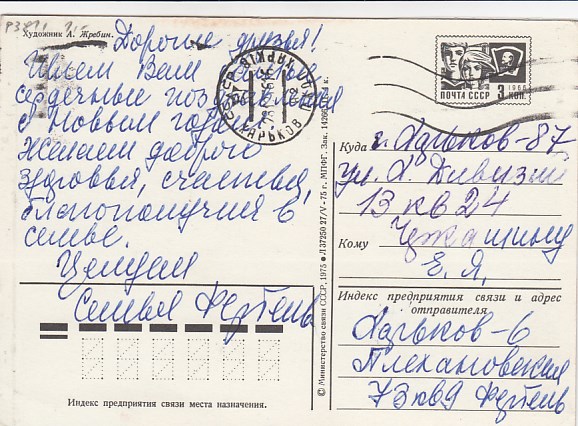 Художник А. Жребин.
Дорогие друзья!
Шлем Вам
сердечные поздравления
с Новым годом
Желаем доброго
здоровья, счастья,
благополучия в
семье.
Целуем
Семья
Индекс предприятия связи места назначения.
© Министерство связи СССР. 1975 Л 37250 27/V - 75 г. МПФГ. Зак.
СССР ХАРЬКОВ
ПОЧТА СССР 3 КОП.
1966
Куда г. Харьков-87
ул. Х. Дивизии
13 кв 24
Кому
Е. Я.
Индекс предприятия связи и адрес
отправителя
Харьков-6
Плехановская
73 кв 9